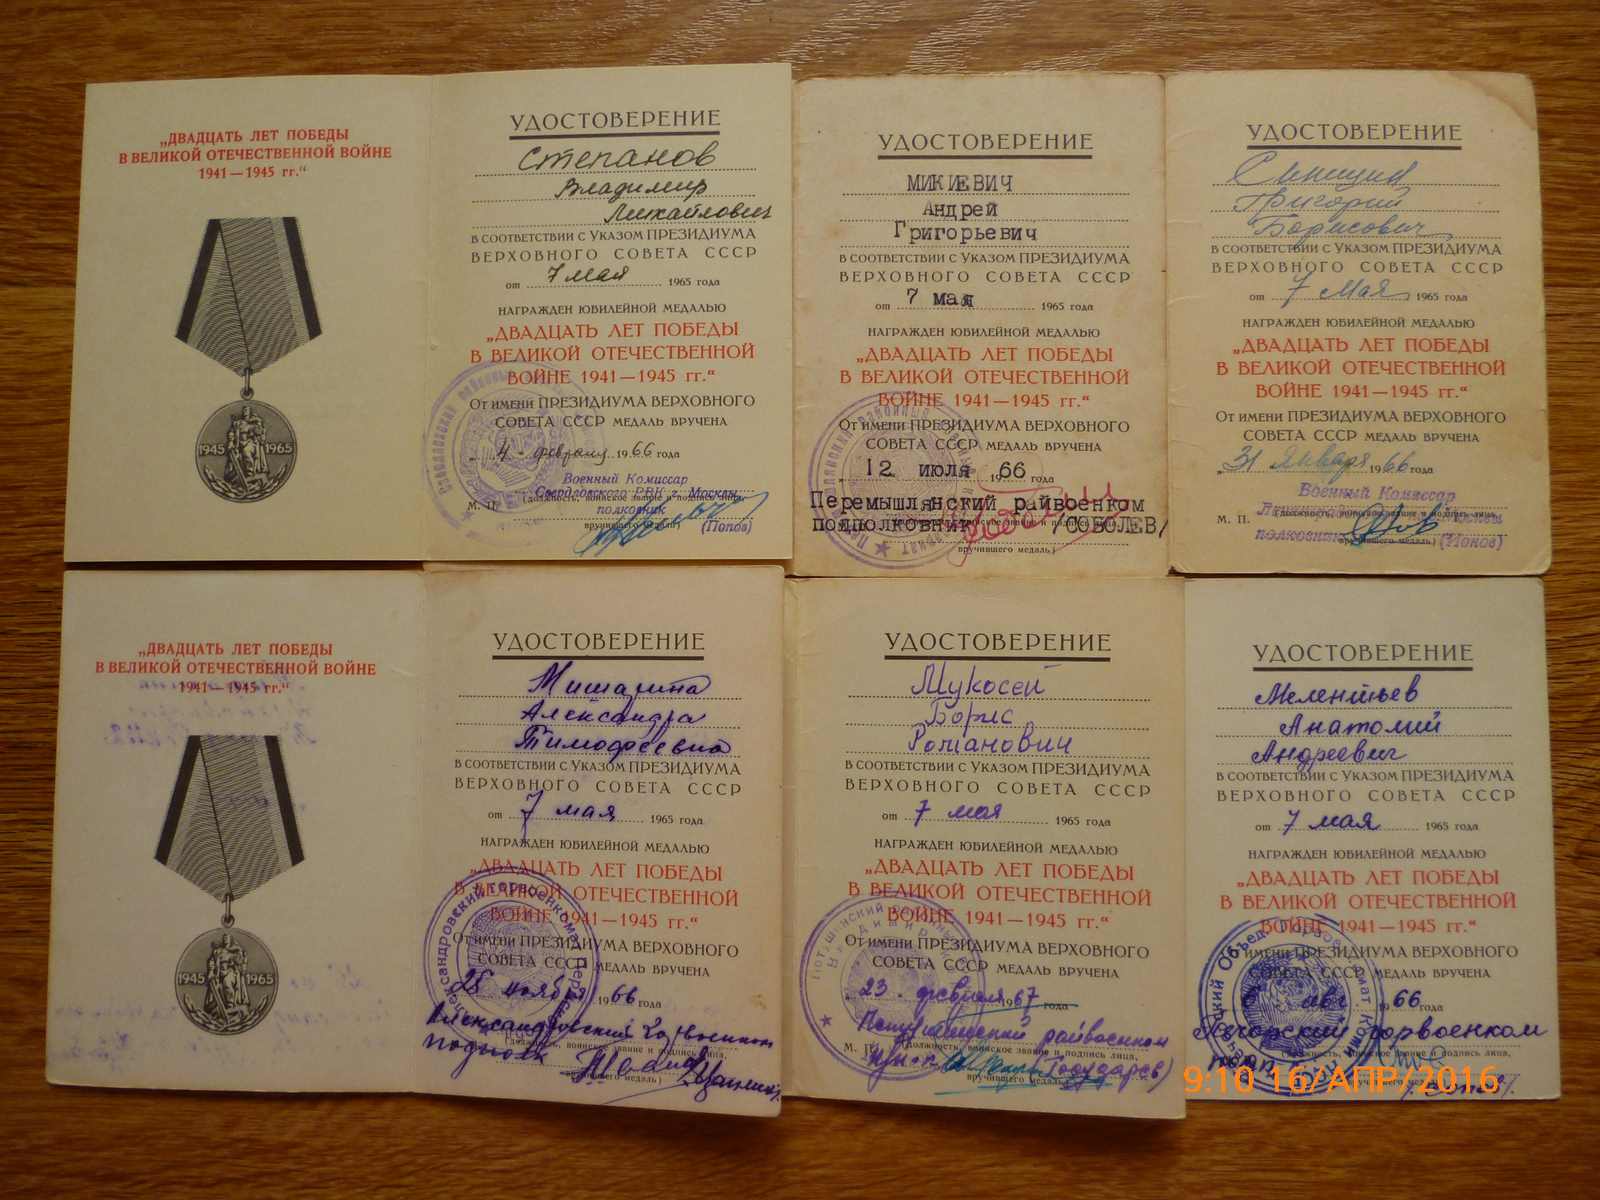 „ДВАДЦАТЬ ЛЕТ ПОБЕДЫ
В ВЕЛИКОЙ ОТЕЧЕСТВЕННОЙ ВОЙНЕ
1941—1945 гг.“
1945 1965
УДОСТОВЕРЕНИЕ
Степанов
Владимир
Михайлович
В СООТВЕТСТВИИ С УКАЗОМ ПРЕЗИДИУМА
ВЕРХОВНОГО СОВЕТА СССР
от 7 мая 1965 года
НАГРАЖДЕН ЮБИЛЕЙНОЙ МЕДАЛЬЮ
„ДВАДЦАТЬ ЛЕТ ПОБЕДЫ
В ВЕЛИКОЙ ОТЕЧЕСТВЕННОЙ
ВОЙНЕ 1941—1945 гг.“
От имени ПРЕЗИДИУМА ВЕРХОВНОГО
СОВЕТА СССР МЕДАЛЬ ВРУЧЕНА
4 февраля 1966 года
Военный Комиссар
Свердловского РВК г. Москвы
М. П. (должность, воинское звание и подпись лица,
полковник
вручившего медаль)
(Попов)
УДОСТОВЕРЕНИЕ
МИКИЕВИЧ
Андрей
Григорьевич
В СООТВЕТСТВИИ С УКАЗОМ ПРЕЗИДИУМА
ВЕРХОВНОГО СОВЕТА СССР
от 7 мая 1965 года
НАГРАЖДЕН ЮБИЛЕЙНОЙ МЕДАЛЬЮ
„ДВАДЦАТЬ ЛЕТ ПОБЕДЫ
В ВЕЛИКОЙ ОТЕЧЕСТВЕННОЙ
ВОЙНЕ 1941—1945 гг.“
От имени ПРЕЗИДИУМА ВЕРХОВНОГО
СОВЕТА СССР МЕДАЛЬ ВРУЧЕНА
12 июля 1966 года
Перемышлянский райвоенком
подполковник /СОБОЛЕВ/
вручившего медаль)
УДОСТОВЕРЕНИЕ
Григорий
Борисович
В СООТВЕТСТВИИ С УКАЗОМ ПРЕЗИДИУМА
ВЕРХОВНОГО СОВЕТА СССР
от 7 мая 1965 года
НАГРАЖДЕН ЮБИЛЕЙНОЙ МЕДАЛЬЮ
„ДВАДЦАТЬ ЛЕТ ПОБЕДЫ
В ВЕЛИКОЙ ОТЕЧЕСТВЕННОЙ
ВОЙНЕ 1941—1945 гг.“
От имени ПРЕЗИДИУМА ВЕРХОВНОГО
СОВЕТА СССР МЕДАЛЬ ВРУЧЕНА
31 января 1966 года
Военный Комиссар
М. П. (должность, воинское звание и подпись лица,
полковник
вручившего медаль)
(Попов)
„ДВАДЦАТЬ ЛЕТ ПОБЕДЫ
В ВЕЛИКОЙ ОТЕЧЕСТВЕННОЙ ВОЙНЕ
1941—1945 гг.“
1945 1965
УДОСТОВЕРЕНИЕ
Мишарина
Александра
Тимофеевна
В СООТВЕТСТВИИ С УКАЗОМ ПРЕЗИДИУМА
ВЕРХОВНОГО СОВЕТА СССР
от 7 мая 1965 года
НАГРАЖДЕН ЮБИЛЕЙНОЙ МЕДАЛЬЮ
„ДВАДЦАТЬ ЛЕТ ПОБЕДЫ
В ВЕЛИКОЙ ОТЕЧЕСТВЕННОЙ
ВОЙНЕ 1941—1945 гг.“
От имени ПРЕЗИДИУМА ВЕРХОВНОГО
СОВЕТА СССР МЕДАЛЬ ВРУЧЕНА
25 ноября 1966 года
Александровский горвоенком
(должность, воинское звание и подпись лица,
подполк
вручившего медаль)
УДОСТОВЕРЕНИЕ
Мукосей
Борис
Романович
В СООТВЕТСТВИИ С УКАЗОМ ПРЕЗИДИУМА
ВЕРХОВНОГО СОВЕТА СССР
от 7 мая 1965 года
НАГРАЖДЕН ЮБИЛЕЙНОЙ МЕДАЛЬЮ
„ДВАДЦАТЬ ЛЕТ ПОБЕДЫ
В ВЕЛИКОЙ ОТЕЧЕСТВЕННОЙ
ВОЙНЕ 1941—1945 гг.“
От имени ПРЕЗИДИУМА ВЕРХОВНОГО
СОВЕТА СССР МЕДАЛЬ ВРУЧЕНА
23 февраля 1967 года
Петушинский райвоенком
М. П. (должность, воинское звание и подпись лица,
(Государев)
вручившего медаль)
УДОСТОВЕРЕНИЕ
Мелентьев
Анатолий
Андреевич
В СООТВЕТСТВИИ С УКАЗОМ ПРЕЗИДИУМА
ВЕРХОВНОГО СОВЕТА СССР
от 7 мая 1965 года
НАГРАЖДЕН ЮБИЛЕЙНОЙ МЕДАЛЬЮ
„ДВАДЦАТЬ ЛЕТ ПОБЕДЫ
В ВЕЛИКОЙ ОТЕЧЕСТВЕННОЙ
ВОЙНЕ 1941—1945 гг.“
От имени ПРЕЗИДИУМА ВЕРХОВНОГО
СОВЕТА СССР МЕДАЛЬ ВРУЧЕНА
авг 1966 года
Печорский горвоенком
(должность, воинское звание и подпись лица,
вручившего медаль)
9:10 16/АПР/2016